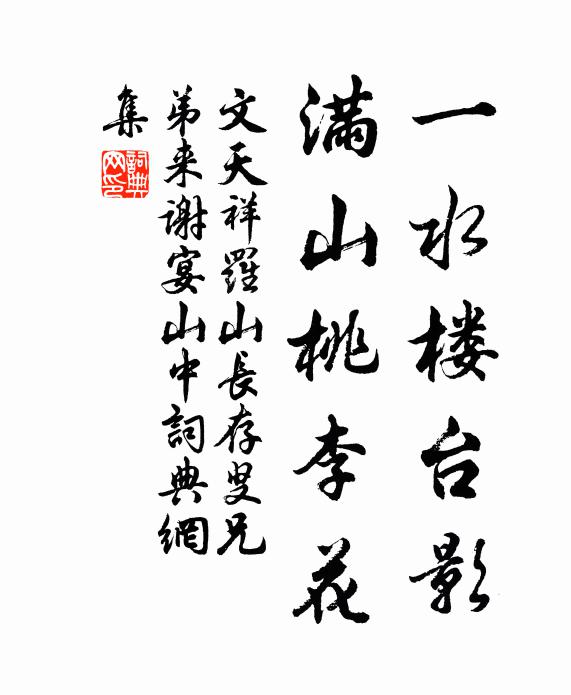 一水楼台影
满山桃李花
文天祥羅山長存叟兄
弟来謝宴山中詞典網
集
詞典
网印